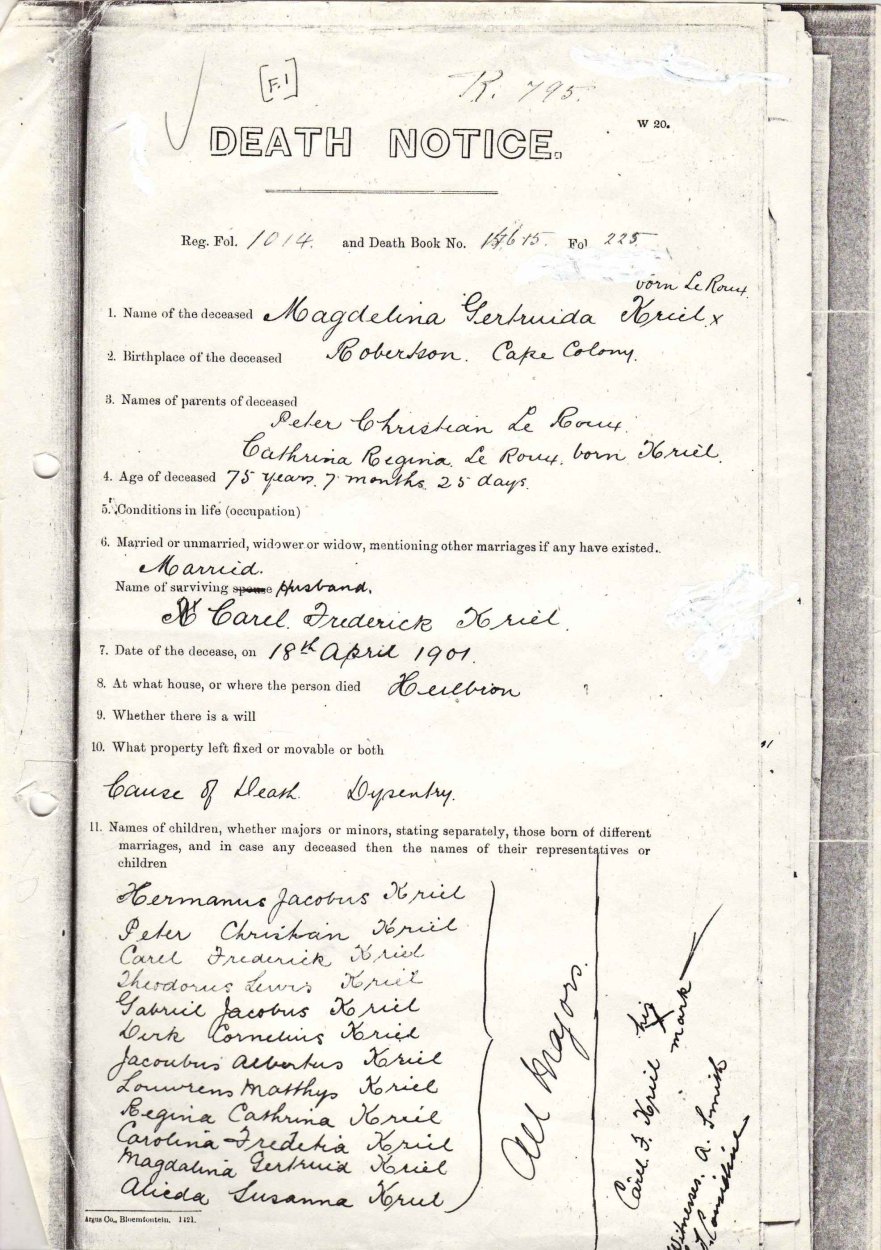 [F.1]
R. 795.
W 20.
DEATH NOTICE.
Reg. Fol. 1014. and Death Book No. 15. Fol 225
born Le Roux
1. Name of the deceased Magdelina Gertruida Kriel x
2. Birthplace of the deceased Robertson. Cape Colony.
3. Names of parents of deceased
Peter Christian Le Roux.
Cathrina Regina. Le Roux. born Kriel.
4. Age of deceased 75 years. 7 months. 25 days.
5. Conditions in life (occupation)
6. Married or unmarried, widower or widow, mentioning other marriages if any have existed.
Married.
Name of surviving spouse Husband.
Carel. Frederick Kriel.
7. Date of the decease, on 18th April 1901.
8. At what house, or where the person died Heilbron ?
9. Whether there is a will
10. What property left fixed or movable or both
Cause of Death. Dysentry.
11. Names of children, whether majors or minors, stating separately, those born of different
marriages, and in case any deceased then the names of their representatives or
children
Hermanus Jacobus Kriel
Peter Christian Kriel
Carel Frederick Kriel
Theodorus Lewis Kriel
Gabriel Jacobus Kriel
Dirk Cornelius Kriel
Jacoubus Albertus Kriel
Louwrens Matthys Kriel
Regina Cathrina Kriel
Carolina Fredetia Kriel
Magdalina Gertruid Kriel
Alieda Susanna Kriel
All Majors.
Carel. F. Kriel his X mark
Witnesses. A. Smith
Argus Co., Bloemfontein. 1421.